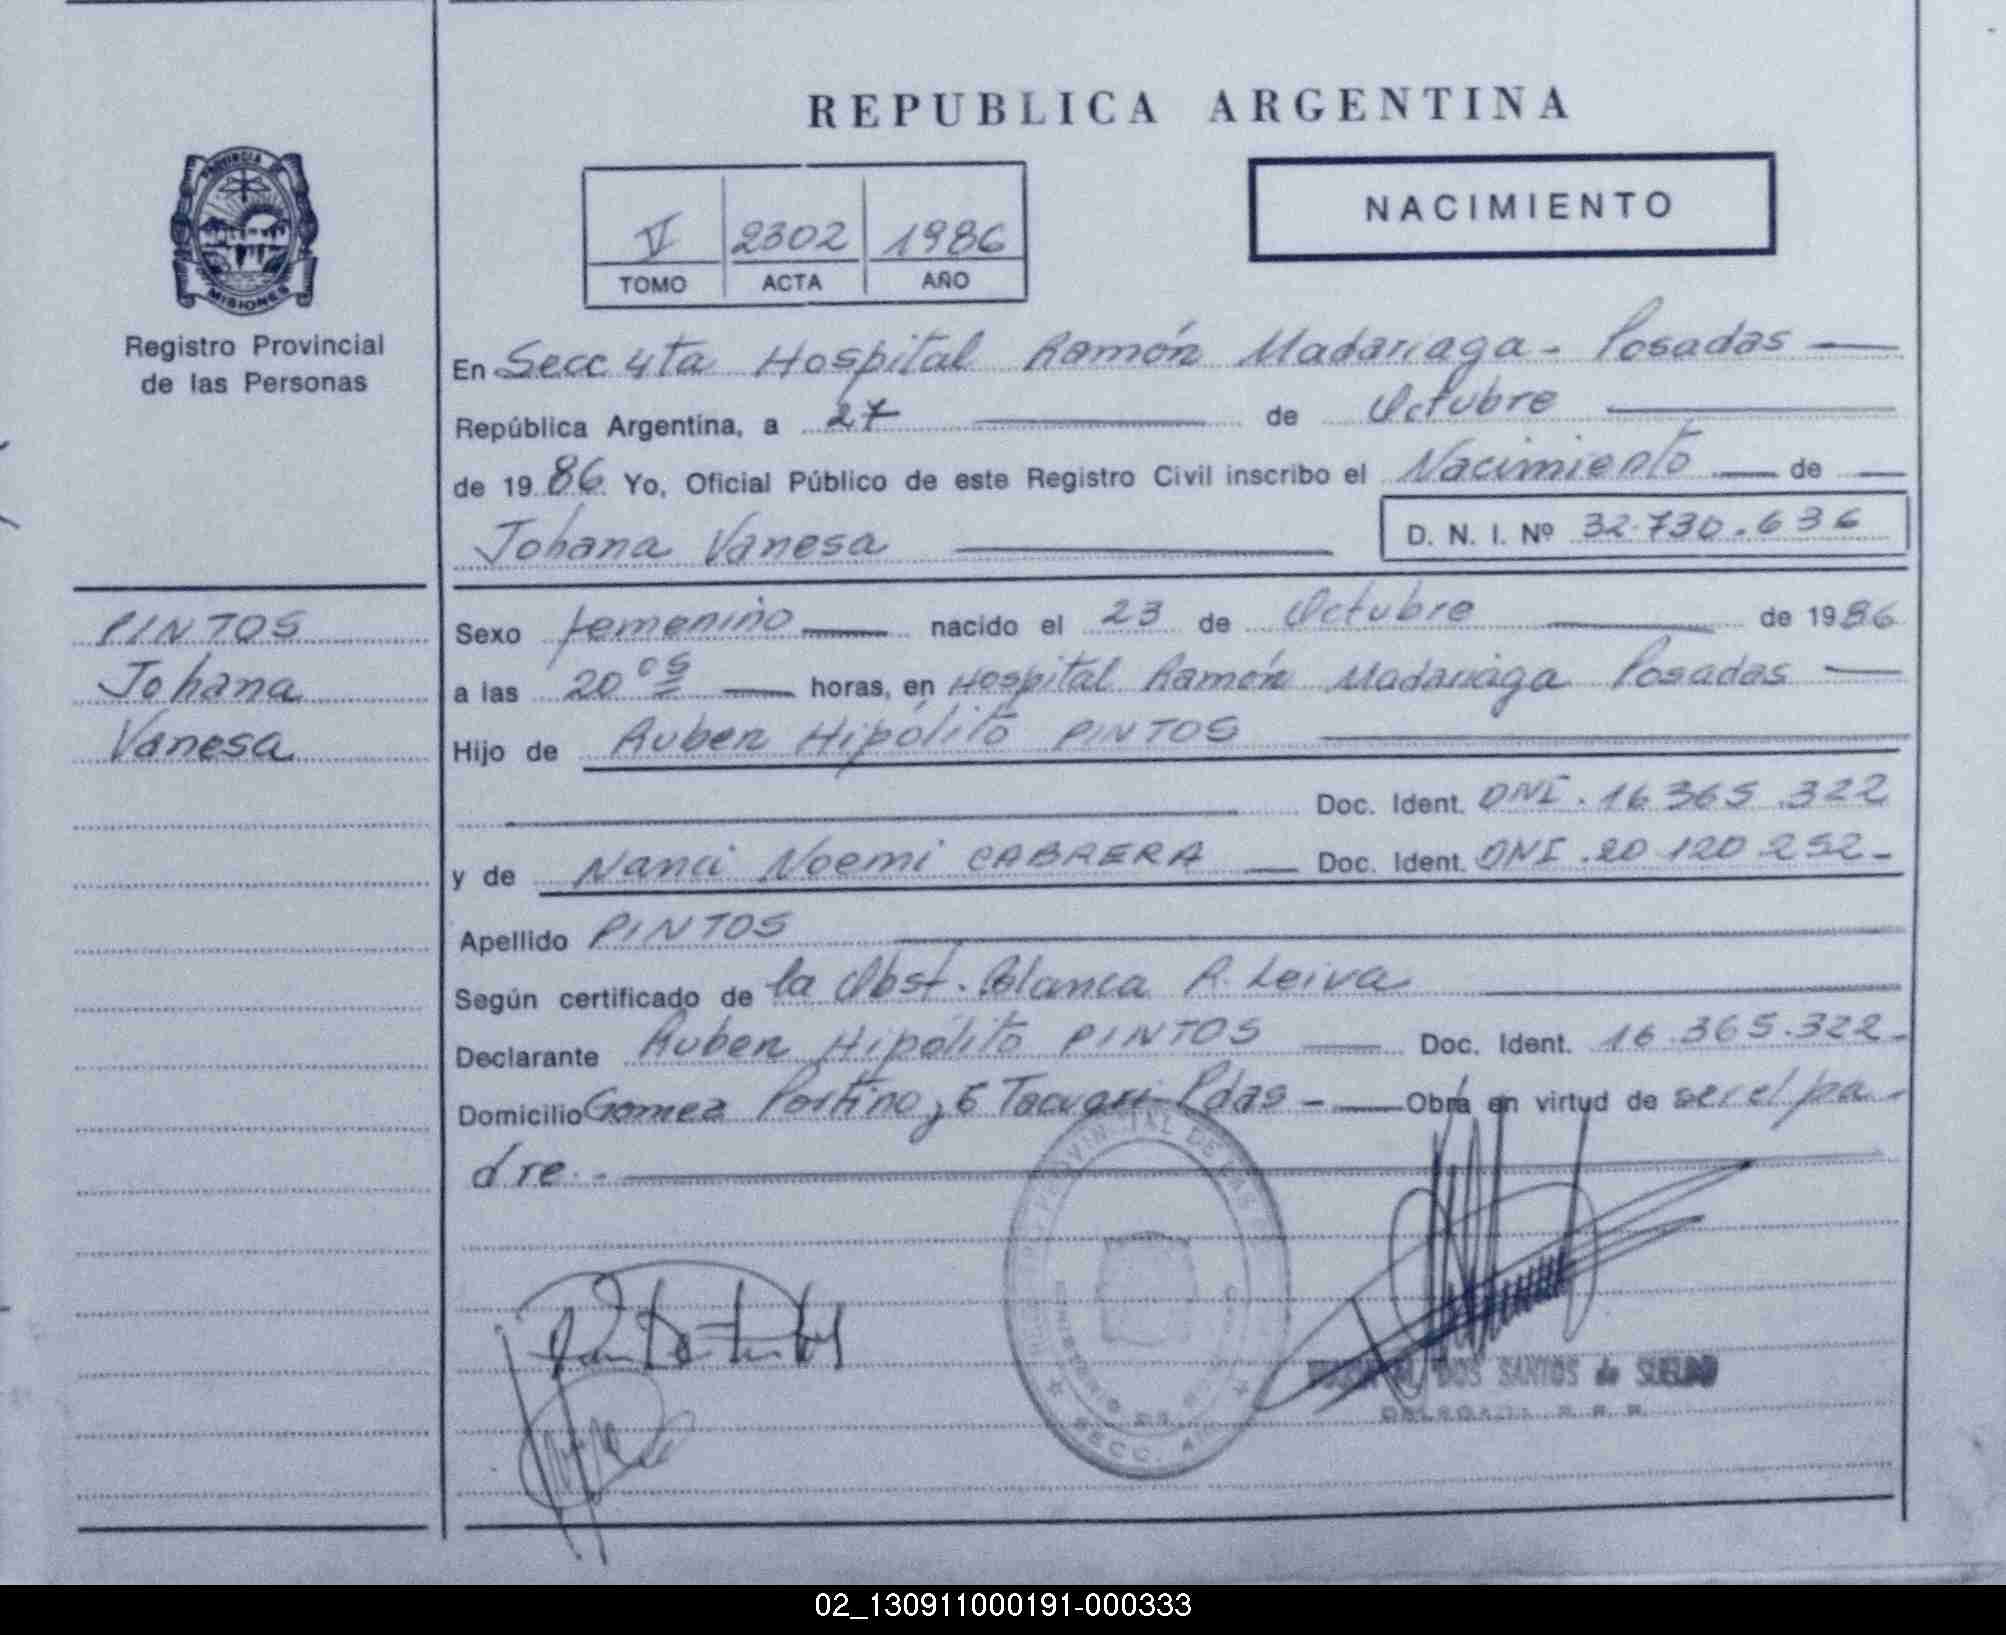 REPUBLICA ARGENTINA
NACIMIENTO
V 2302 1986
TOMO ACTA AÑO
PROVINCIA DE
MISIONES
Registro Provincial
de las Personas
En Secc 4ta Hospital Ramón Madariaga - Posadas
República Argentina, a 27 de Octubre
de 1986 Yo, Oficial Público de este Registro Civil inscribo el Nacimiento de
Johana Vanesa D. N. I. Nº 32.730.636
PINTOS
Johana
Vanesa
Sexo femenino nacido el 23 de Octubre de 1986
a las 20 05 horas, en Hospital Ramón Madariaga Posadas
Hijo de Ruben Hipólito PINTOS
Doc. Ident. DNI. 16 365 .322
y de Nanci Noemi CABRERA Doc. Ident. DNI .20 120 252-
Apellido PINTOS
Según certificado de la Obst. Blanca R. Leiva
Declarante Ruben Hipólito PINTOS Doc. Ident. 16.365.322-
Domicilio Gomez Portino y Tacuari Pdas - Obra en virtud de ser el pa-
dre.-
PROVINCIAL DE LAS
SECC. 4
DOS SANTOS de SUELDO
DELEGADA R.P.P.
02_130911000191-000333